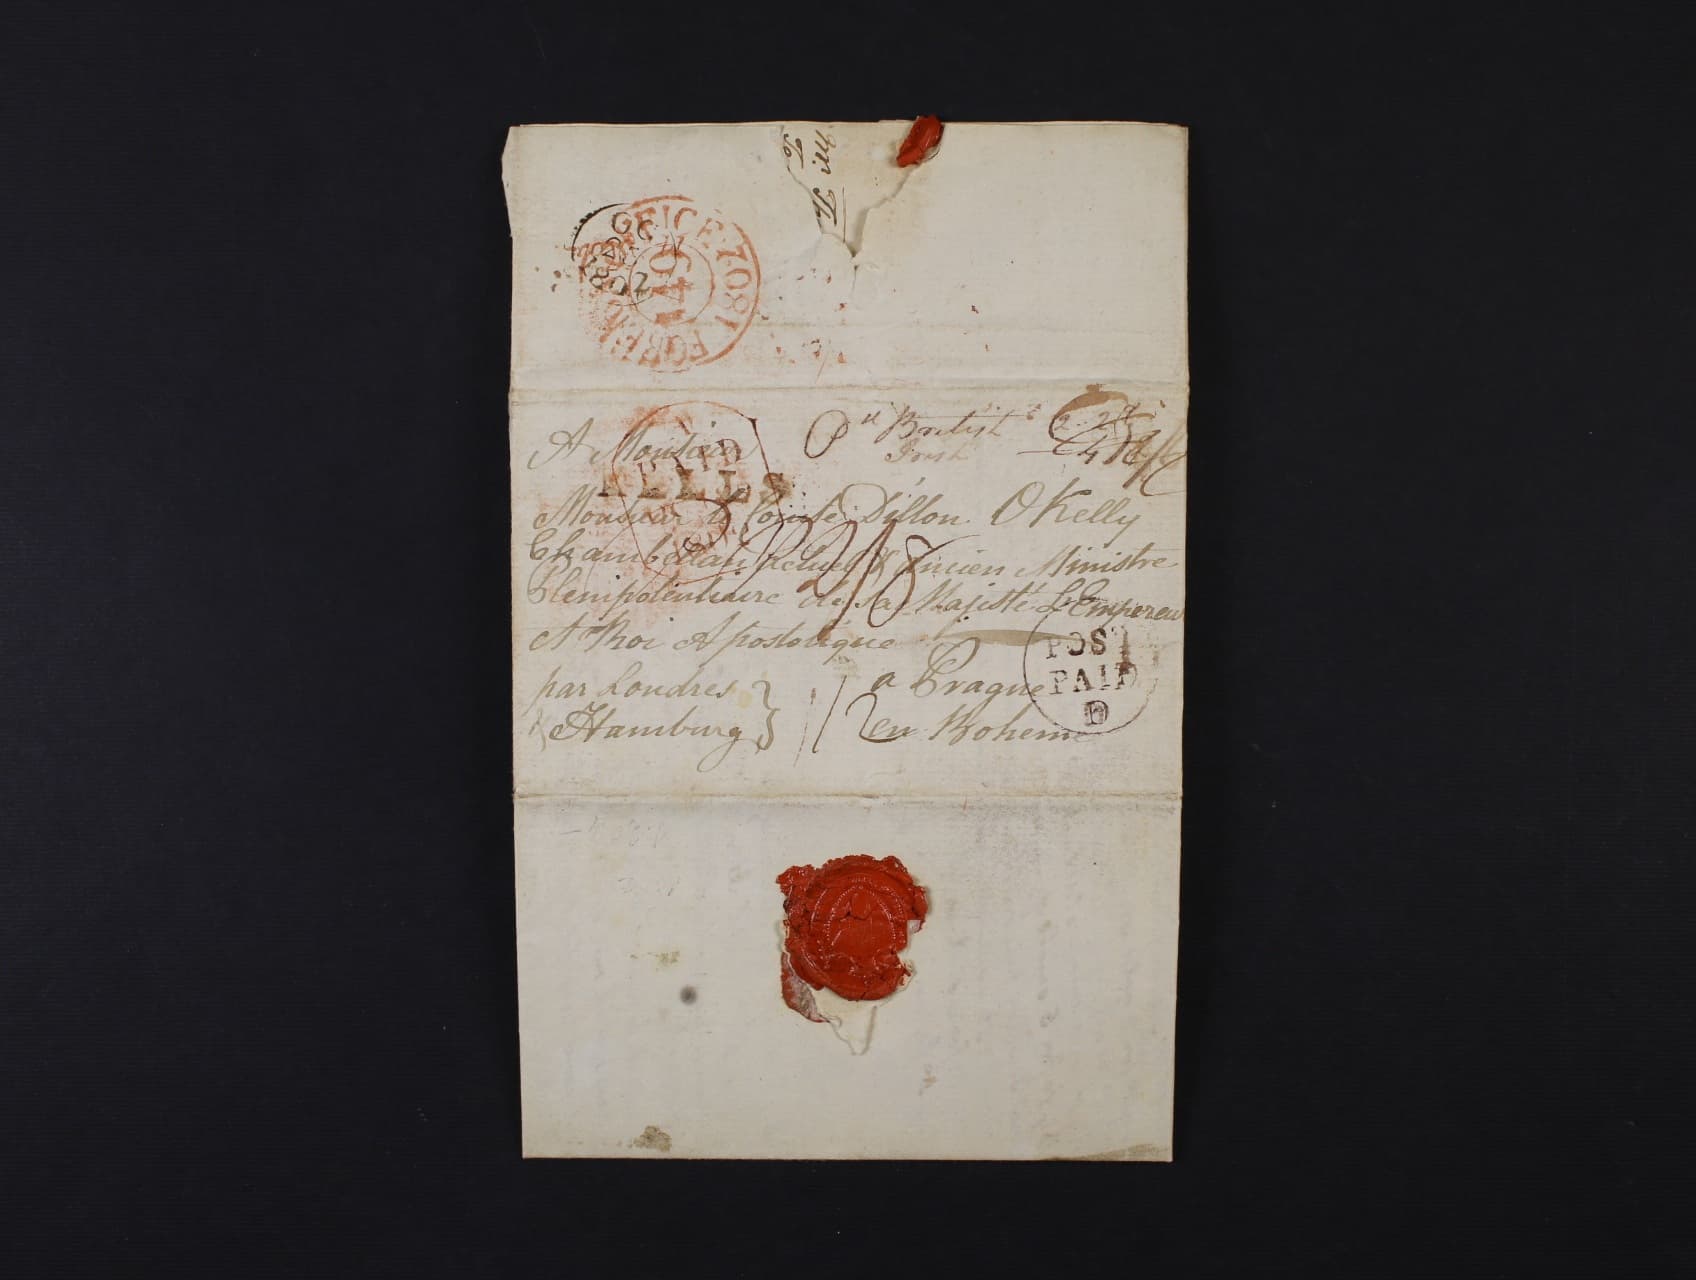 FOREIGN OFFICE 1801
14
A Monsieur
Pd British
Irish
PAID
KELLS
Monsieur le Comte Dillon O Kelly
Chambellan Actuel & Ancien Ministre
Plenipotentiaire de sa Majesté L'Empereur
et Roi Apostolique
par Londres
& Hamburg
a Prague
en Boheme
POST
PAID
D